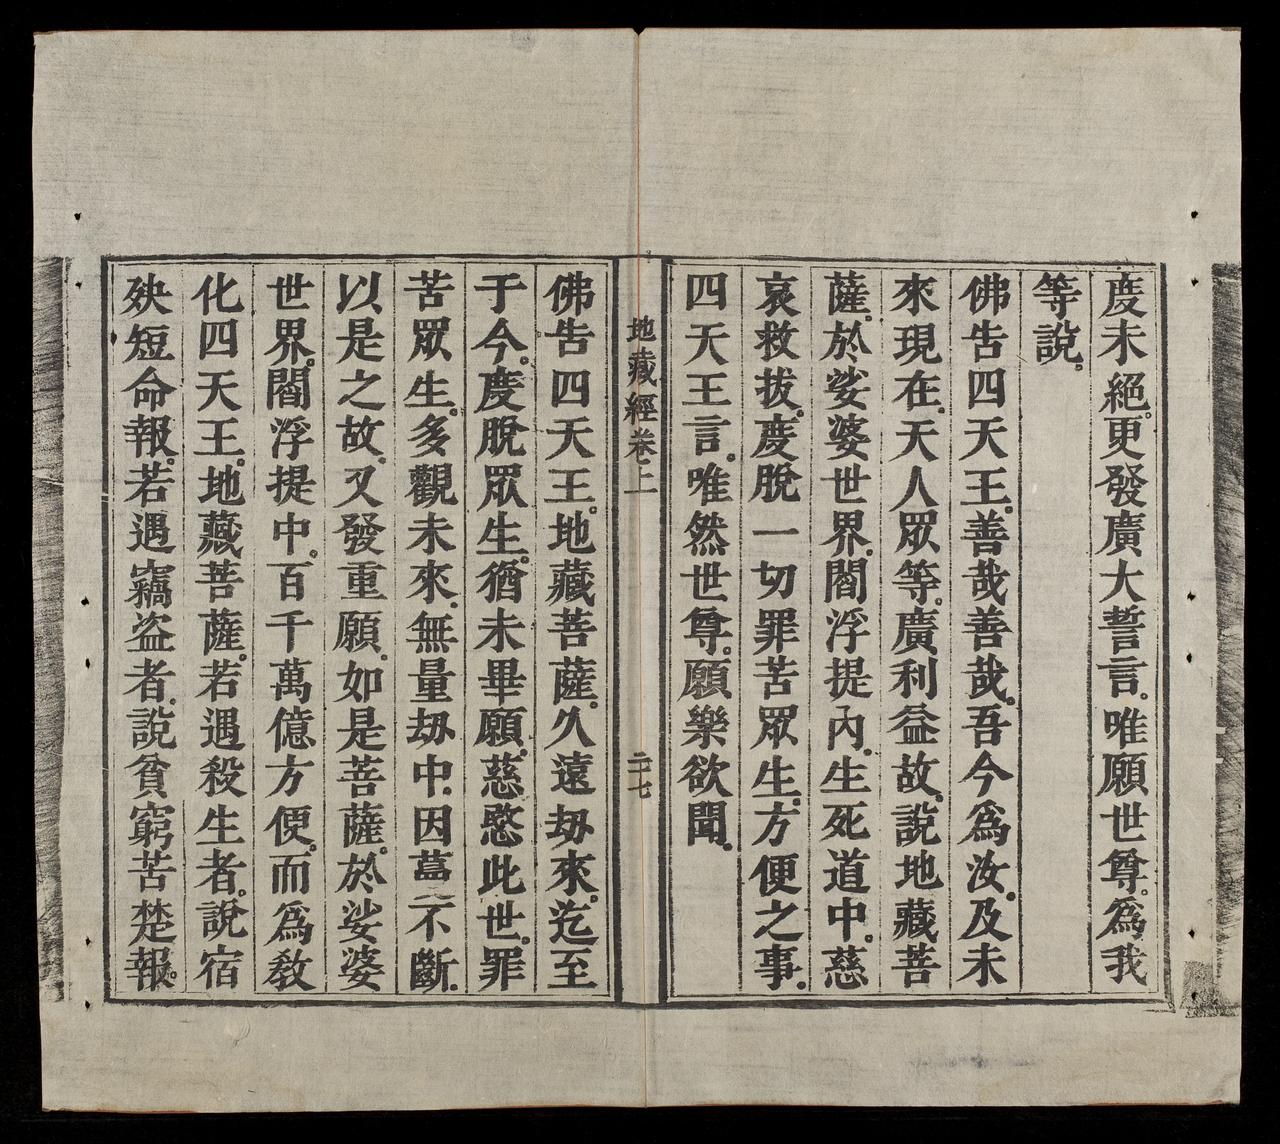 度未絕。更發廣大誓言。唯願世尊。爲我
等說。
佛告四天王。善哉善哉。吾今爲汝。及未
來現在。天人眾等。廣利益故。說地藏菩
薩。於娑婆世界。閻浮提內。生死道中。慈
哀救拔。度脫一切罪苦眾生。方便之事。
四天王言。唯然世尊。願樂欲聞。
地藏經卷上
二十七
佛告四天王。地藏菩薩。久遠劫來。迄至
于今。度脫眾生。猶未畢願。慈愍此世。罪
苦眾生。多觀未來。無量劫中。因不斷。
以是之故。又發重願。如是菩薩。於娑婆
世界。閻浮提中。百千萬億方便。而爲教
化四天王。地藏菩薩。若遇殺生者。說宿
殃短命報。若遇竊盜者。說貧窮苦楚報。